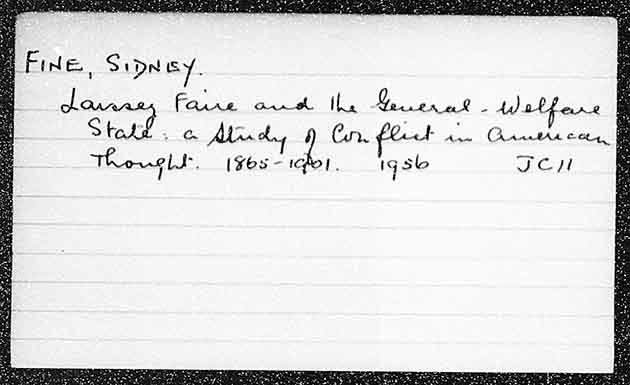 FINE, SIDNEY.
Laissez Faire and the General-Welfare
State: a Study of Conflict in American
Thought. 1865-1901. 1956 JC11